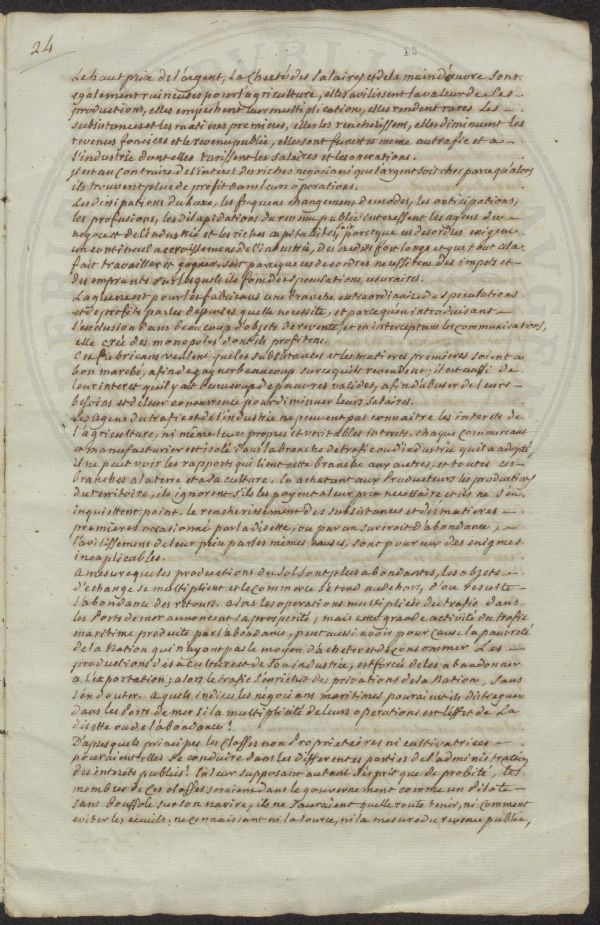 24
Le haut prix de l'argent, La Cherté des Salaires et de la main d'œuvre sont
egalement ruineuses pour l'agriculture, elles avilissent la valeur de Ses
productions, elles empêchent leur multiplication, elles rendent rares les
subsistances et les matieres premieres, elles les rencherissent, elles diminuent les
revenus fonciers et le revenu public, elles sont funestes même au trafic et a
l'industrie dont elles tarissent les Salaires et les operations.
Il est au Contraire de l'interet des riches negocians que l'argent soit cher parce qu'alors
ils trouvent plus de profit dans leurs operations.
Les dissipations du luxe, les frequens changemens de modes, les anticipations,
les profusions, les dilapidations du revenu public interessent les agens du
negoce et de l'industrie et les riches capitalistes, soit parceque ces desordres exigent
un continuel accroissement de l'industrie, des credits fort longs et que tout cela
fait travailler et gagner, soit parceque ces desordres necessitent des impots et
des emprunts sur lesquels ils font des speculations usuraires.
La guerre est pour les fabricans une Cause extraordinaire de speculations
et de profits par les depenses quelle necessite, et parcequ'en introduisant
l'exclusion dans beaucoup d'objets de revente, et en interceptant les communications,
elle crée des monopoles dont ils profitent.
Ces fabricans veulent que les subsistances et les matieres premieres soient a
bon marché, afin de gagner beaucoup sur ce qu'ils revendent; il est aussi de
leur interet qu'il y ait beaucoup de pauvres valides, afin d'abuser de leurs
besoins et de leur concurrence pour diminuer leurs salaires.
Les agens du trafic et de l'industrie ne peuvent pas connaitre les interets de
l'agriculture, ni même leurs propres et veritables interets. chaque Commercant
et manufacturier est isolé dans la branche de trafic ou d'industrie qu'il a adopté,
il ne peut voir les rapports qui lient cette branche aux autres, et toutes ces
branches a la terre et a sa culture. En achetant aux Producteurs les productions
du territoire, ils ignorent s'ils les payent a leur prix necessaire et ils ne s'en
inquiettent point. le rencherissement des subsistances et des matieres
premieres occasionné par la disette, ou par un surcroit d'abondance,
l'avilissement de leur prix par les mêmes causes, sont pour eux des enigmes
inexplicables.
A mesure que les productions du Sol sont plus abondantes, les objets
d'échange se multiplient et le Commerce s'etend au dehors, d'où resulte
l'abondance des retours. alors les operations multipliées du trafic dans
les Ports de mer annoncent la prosperité; mais cette grande activité du trafic
maritime produite par l'abondance, peut aussi avoir pour Cause la pauvreté
de la Nation qui n'ayant pas le moyen d'acheter et de consommer Les
productions de sa culture et de Son industrie, est forcée de les abandonner
a l'exportation; alors le trafic s'enrichit des privations de la Nation, sans
s'en douter. a quels indices les negocians maritimes pouraient ils distinguer
dans les Ports de mer si la multiplicité de leurs operations est l'effet de La
disette ou de l'abondance?
D'apres quels principes les Classes non Proprietaires ni cultivatrices
pouraient elles se conduire dans les differentes parties de l'administration
des interets publics? En leur supposant autant d'esprit que de probité, les
membres de ces classes seraient dans le gouvernement comme un Pilote
sans Boussole sur son navire, ils ne sauraient quelle route tenir, ni comment
eviter les ecueils; ne connaissant ni la source, ni la mesure du revenu public,